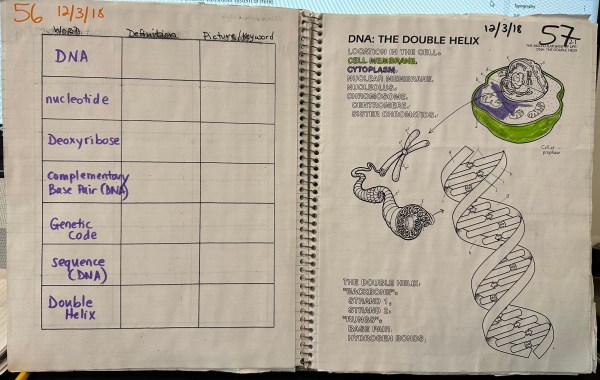 56 12/3/18
Word Definition Picture/Keyword
DNA
nucleotide
Deoxyribose
Complementary
Base Pair (DNA)
Genetic
Code
sequence
(DNA)
Double
Helix
12/3/18
57
DNA: THE DOUBLE HELIX
DNA: THE DOUBLE HELIX
LOCATION IN THE CELL:
CELL MEMBRANE
CYTOPLASM
NUCLEAR MEMBRANE
NUCLEOLUS
CHROMOSOME
CENTROMERE
SISTER CHROMATIDS
THE DOUBLE HELIX:
"BACKBONE":
STRAND 1
STRAND 2
"RUNGS":
BASE PAIR
HYDROGEN BONDS